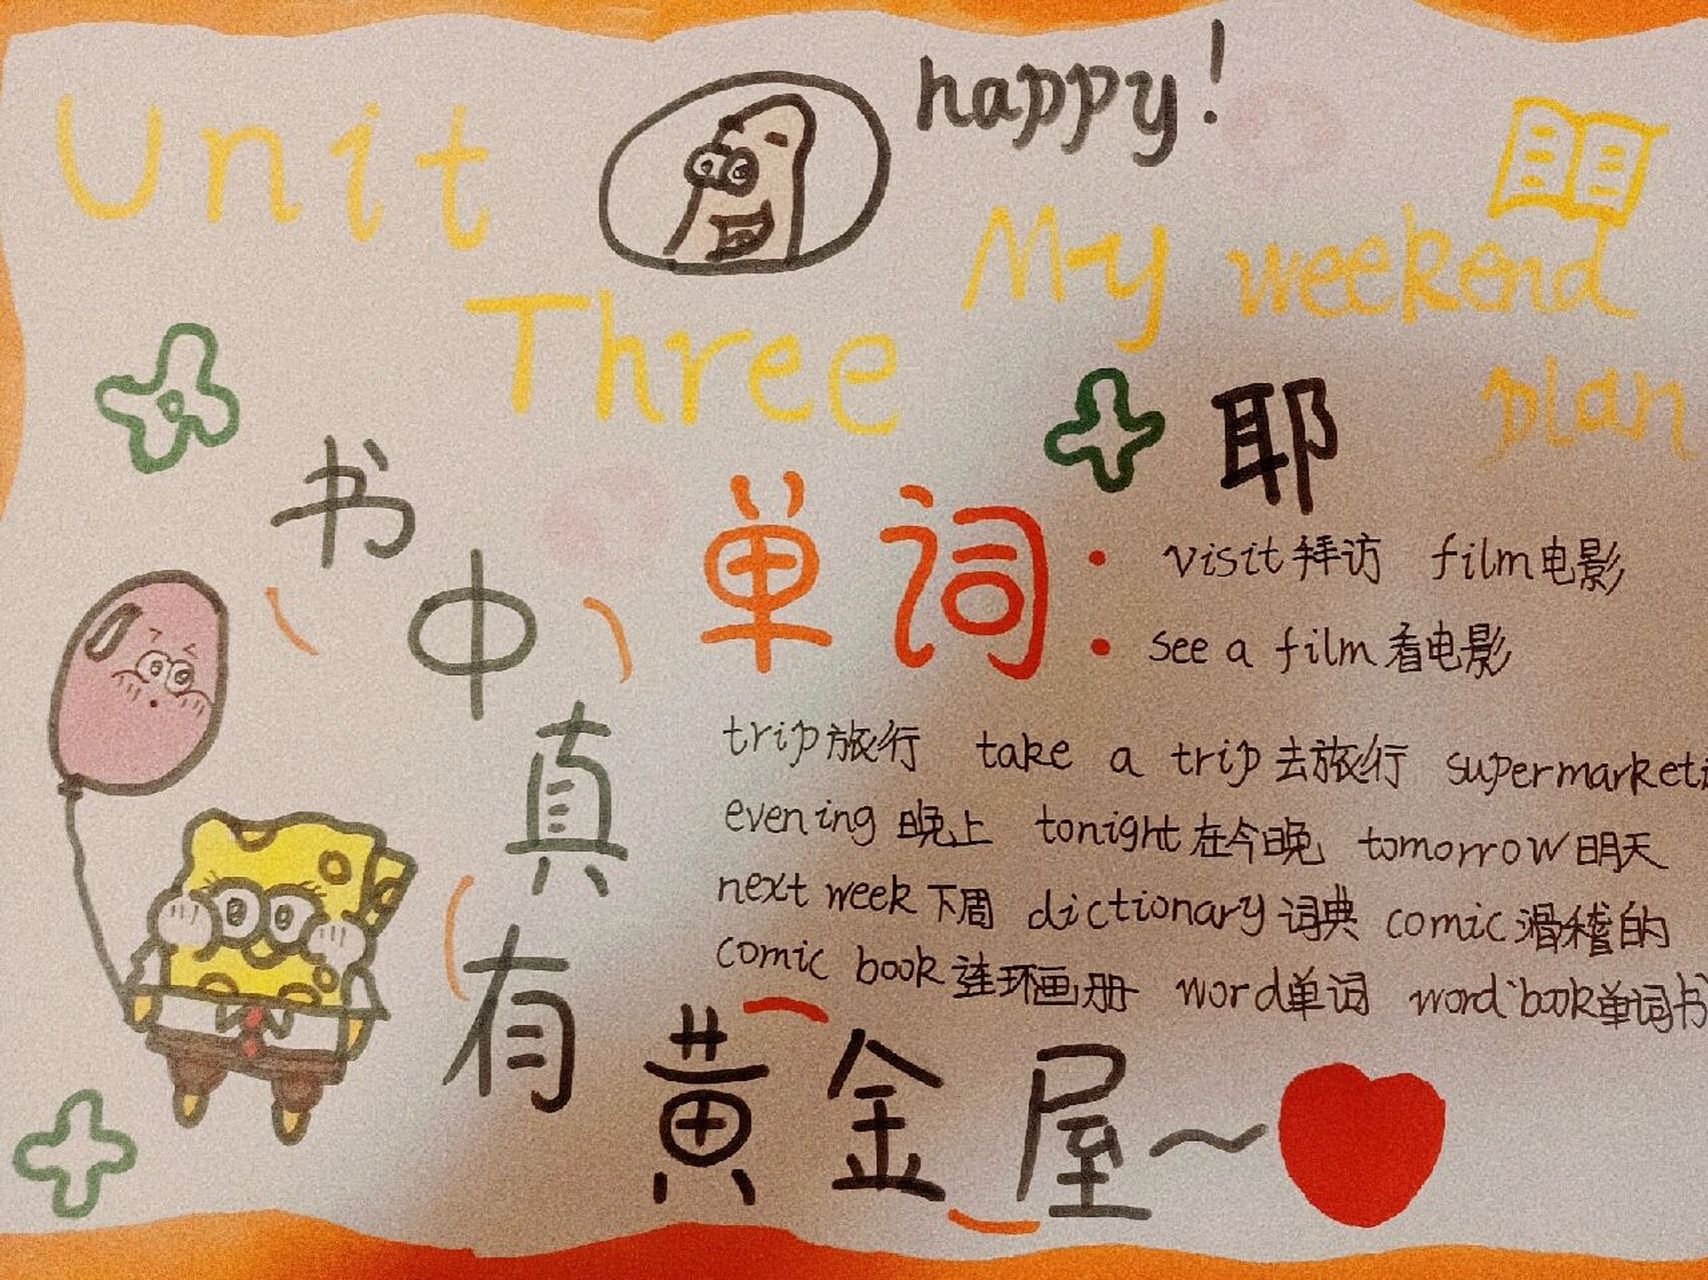 happy!
Unit
Three
My weekend
plan
耶
单词:
visit拜访 film电影
see a film看电影
trip旅行 take a trip去旅行 supermarket
evening晚上 tonight在今晚 tomorrow明天
next week下周 dictionary词典 comic滑稽的
comic book连环画册 word单词 word book单词书
书中真有
黄金屋~